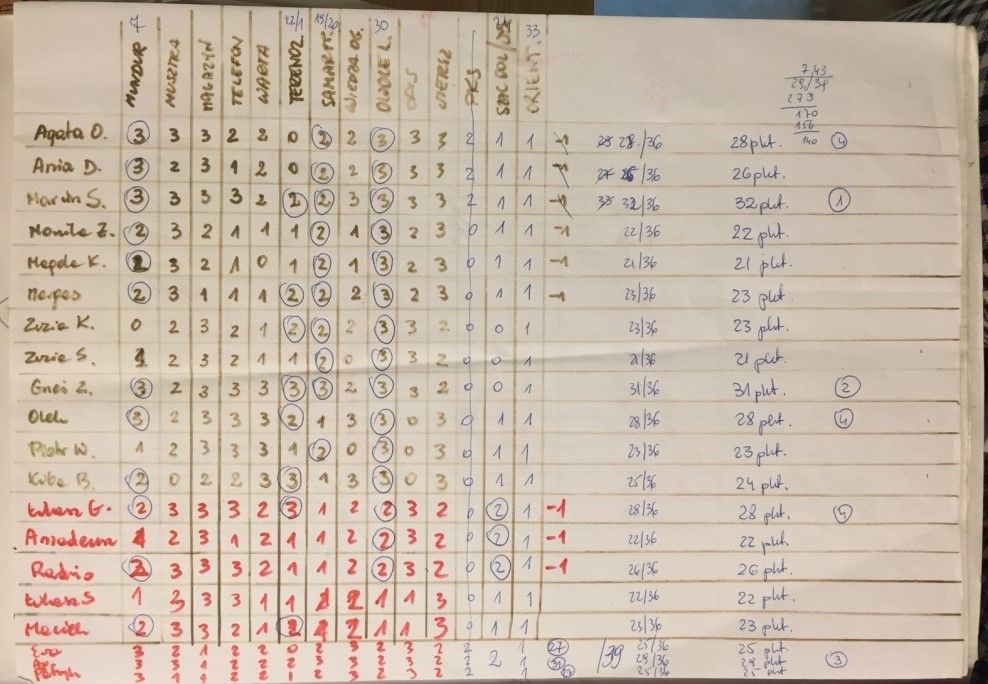 7 22/1 19/20 30 24 33
MUNDUR MUSZTRA MAGAZYN TELEFON WARTA TERENOZ. SAMARYT. WIEDZA OG. OGÓLE L. OPIS PKS ORIENT.
7,43
273
170
156
140
Agata O. 3 3 3 2 2 0 2 2 3 3 3 2 1 1 -1 28/36 28 pkt. 4
Ania D. 3 2 3 1 2 0 2 2 3 3 3 2 1 1 26/36 26 pkt.
Marcin S. 3 3 3 3 2 2 2 3 3 3 3 2 1 1 32/36 32 pkt. 1
Monika Z. 2 3 2 1 1 1 2 1 3 2 3 0 1 1 -1 22/36 22 pkt.
Magda K. 2 3 2 1 0 1 2 1 3 2 3 0 1 1 -1 21/36 21 pkt.
2 3 1 1 1 2 2 2 3 2 3 0 1 1 -1 23/36 23 pkt.
Zuzia K. 0 2 3 2 1 2 2 2 3 3 2 0 0 1 23/36 23 pkt.
Zuzia S. 1 2 3 2 1 1 2 0 3 3 2 0 0 1 21/36 21 pkt.
3 2 3 3 3 3 3 2 3 3 2 0 0 1 31/36 31 pkt. 2
Olek 3 2 3 3 3 2 1 3 3 0 3 0 1 1 28/36 28 pkt. 4
Piotr W. 1 2 3 3 3 1 2 0 3 0 3 0 1 1 23/36 23 pkt.
Kuba B. 2 0 2 2 3 3 1 3 3 0 3 0 1 1 25/36 24 pkt.
Łukasz G. 2 3 3 3 2 3 1 2 2 3 2 0 2 1 -1 28/36 28 pkt. 4
Amadeusz 1 2 3 1 2 1 1 2 2 3 2 0 2 1 -1 22/36 22 pkt
Radzio 3 3 3 3 2 1 1 2 2 3 2 0 2 1 -1 26/36 26 pkt.
Łukasz S 1 3 3 3 1 1 2 2 1 1 3 0 1 1 22/36 22 pkt.
Maciek 2 3 3 2 1 2 2 2 1 1 3 0 1 1 23/36 23 pkt.
Ewa 3 2 1 2 2 0 2 2 3 3 2 2 27 25/36 25 pkt
2 1 /39 29/36 29 pkt 3
25/36 25 pkt